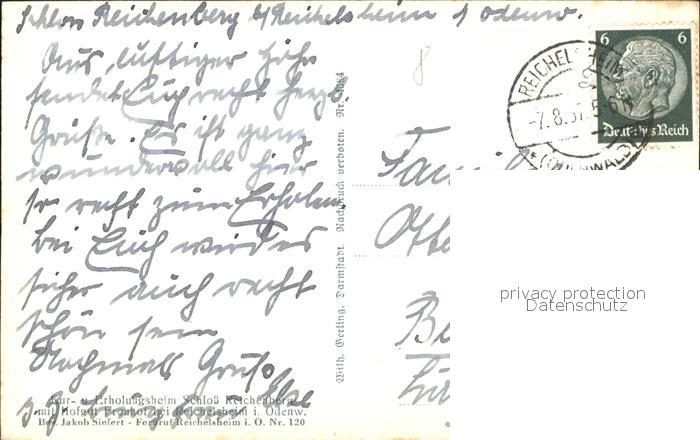 Schloss Reichenberg b/Reichelsheim i/Odenw.
Aus luftiger Höhe
sendet Euch recht herzl.
Grüße. Es ist ganz
wundervoll hier
so recht zum Erholen.
Bei Euch wird es
sicher auch recht
schön sein
Nochmals Gruß
Else
8
6 6
Deutsches Reich
REICHELSHEIM
-7.8.37.5-6N
(ODENWALD)
Famil
Otte
privacy protection
Datenschutz
Wilh. Gerling, Darmstadt. Nachdruck verboten. Nr.
Kur- u. Erholungsheim Schloß Reichenberg
mit Hofgut Fronhof bei Reichelsheim i. Odenw.
Bes. Jakob Siefert - Fernruf Reichelsheim i. O. Nr. 120